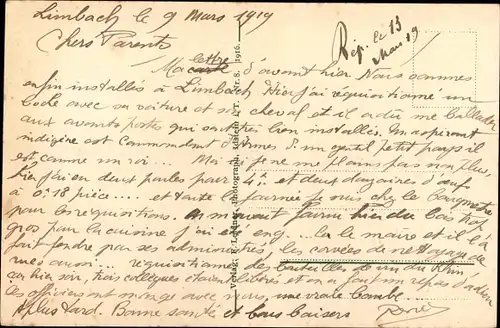 Limbach le 9 Mars 1919
Rép. le 13 Mars 19
Chers Parents
Ma carte lettre d'avant hier. Nous sommes
enfin installés à Limbach. Hier j'ai réquisitionné un
Boche avec sa voiture et son cheval et il a dû me ballader
aux avants postes qui sont très bien installés. Un
indigène est Commandant d'Armes d'un gentil petit pays il
est comme un roi... Moi je ne me plains pas non plus,
hier j'ai eu deux poules pour 4 et deux douzaines d'œuf
à 0.18 pièce... et toute la journée je suis chez le
pour les réquisitions. On m'avait fourni hier du bois trop
gros pour la cuisine j'ai eng... le maire et il l'a
fait fendre par ses administrés, les corvées de nettoyage de
rues aussi... réquisitionné des bouteilles de vin du Rhin
car hier soir, trois collègues étaient libérés et on a fait un repas d'adieu
les officiers ont mangé avec une vraie bombe
A plus tard. Bonne santé et bons baisers
René